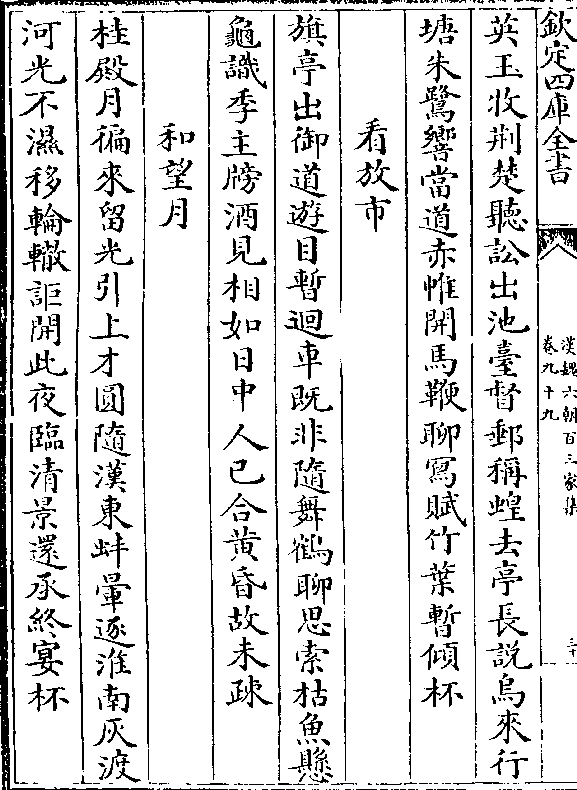 欽定四庫全書
漢魏六朝百三家集
卷九十九
三十
英王收荆楚聽訟出池臺督郵稱蝗去亭長説烏來行
塘朱鷺響當道赤帷開馬鞭聊冩賦竹葉暫傾杯
看放市
旗亭出御道遊目暫迴車既非隨舞鶴聊思索枯魚懸
龜識季主牓酒見相如日中人已合黄昏故未疎
和望月
桂殿月徧來留光引上才圓隨漢東蚌暈逐淮南灰渡
河光不濕移輪轍詎開此夜臨清景還承終宴杯